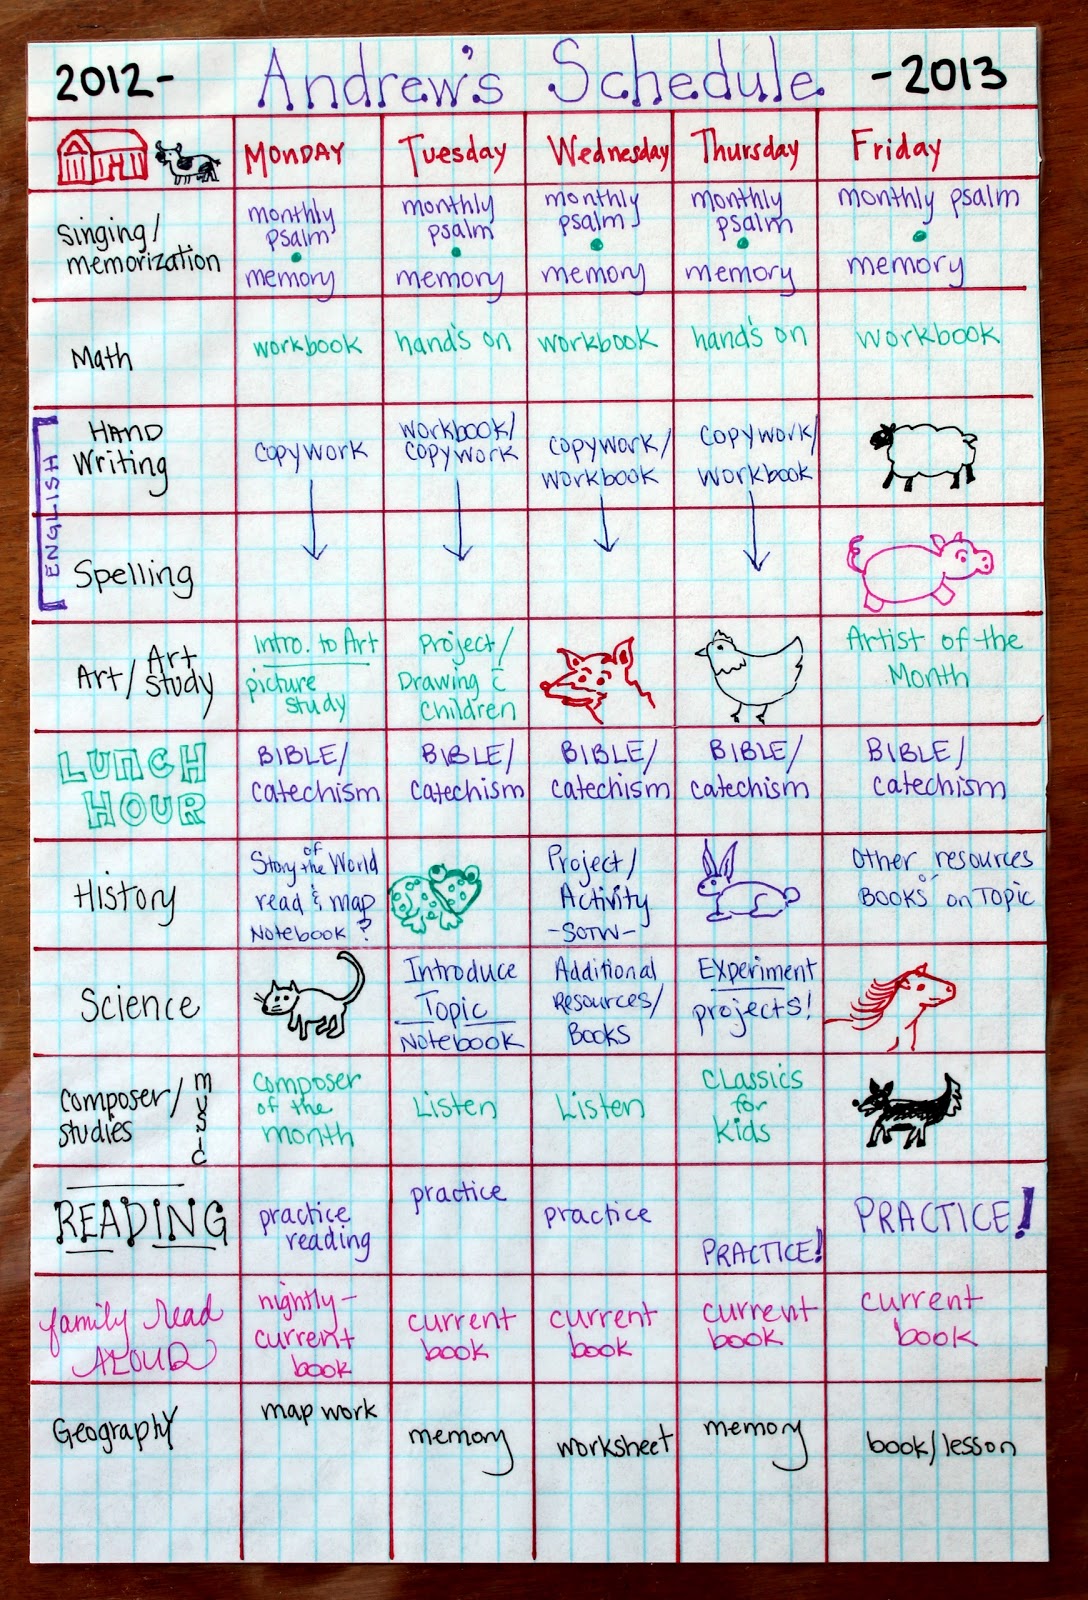 2012- Andrew's Schedule -2013
MONDAY Tuesday Wednesday Thursday Friday
Singing/
memorization
monthly
psalm
memory
monthly
psalm
memory
monthly
psalm
memory
monthly
psalm
memory
monthly psalm
memory
Math
workbook
hand's on
workbook
hand's on
workbook
ENGLISH
HAND
Writing
copywork
workbook/
copywork
copywork/
workbook
copywork/
workbook
Spelling
Art/Art
study
Intro. to Art
picture
study
Project/
Drawing c
Children
Artist of the
Month
LUNCH
HOUR
BIBLE/
catechism
BIBLE/
catechism
BIBLE/
catechism
BIBLE/
catechism
BIBLE/
catechism
History
Story of the World
read & map
Notebook?
Project/
Activity
-SOTW-
other resources
BOOKS on Topic
Science
Introduce
Topic
Notebook
Additional
Resources/
Books
Experiment
projects!
Composer/
studies
MUSIC
composer
of the
month
Listen
Listen
Classics
for
Kids
READING
practice
reading
practice
practice
PRACTICE!
PRACTICE!
family Read
ALOUD
nightly-
current
book
current
book
current
book
current
book
current
book
Geography
map work
memory
worksheet
memory
book/lesson